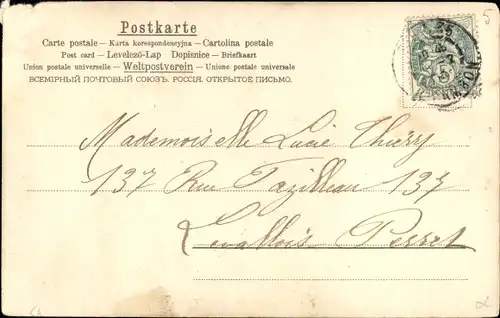 Postkarte
Carte postale – Karta korespondencyjna – Cartolina postale
Post card – Levelező-Lap Dopisnice – Briefkaart
Union postale universelle – Weltpostverein – Unione postale universale
ВСЕМІРНЫЙ ПОЧТОВЫЙ СОЮЗЪ. РОССІЯ. ОТКРЫТОЕ ПИСЬМО.
5
Mademoiselle Lucie Thierry
137 Rue Fazilleau 137
Levallois Perret